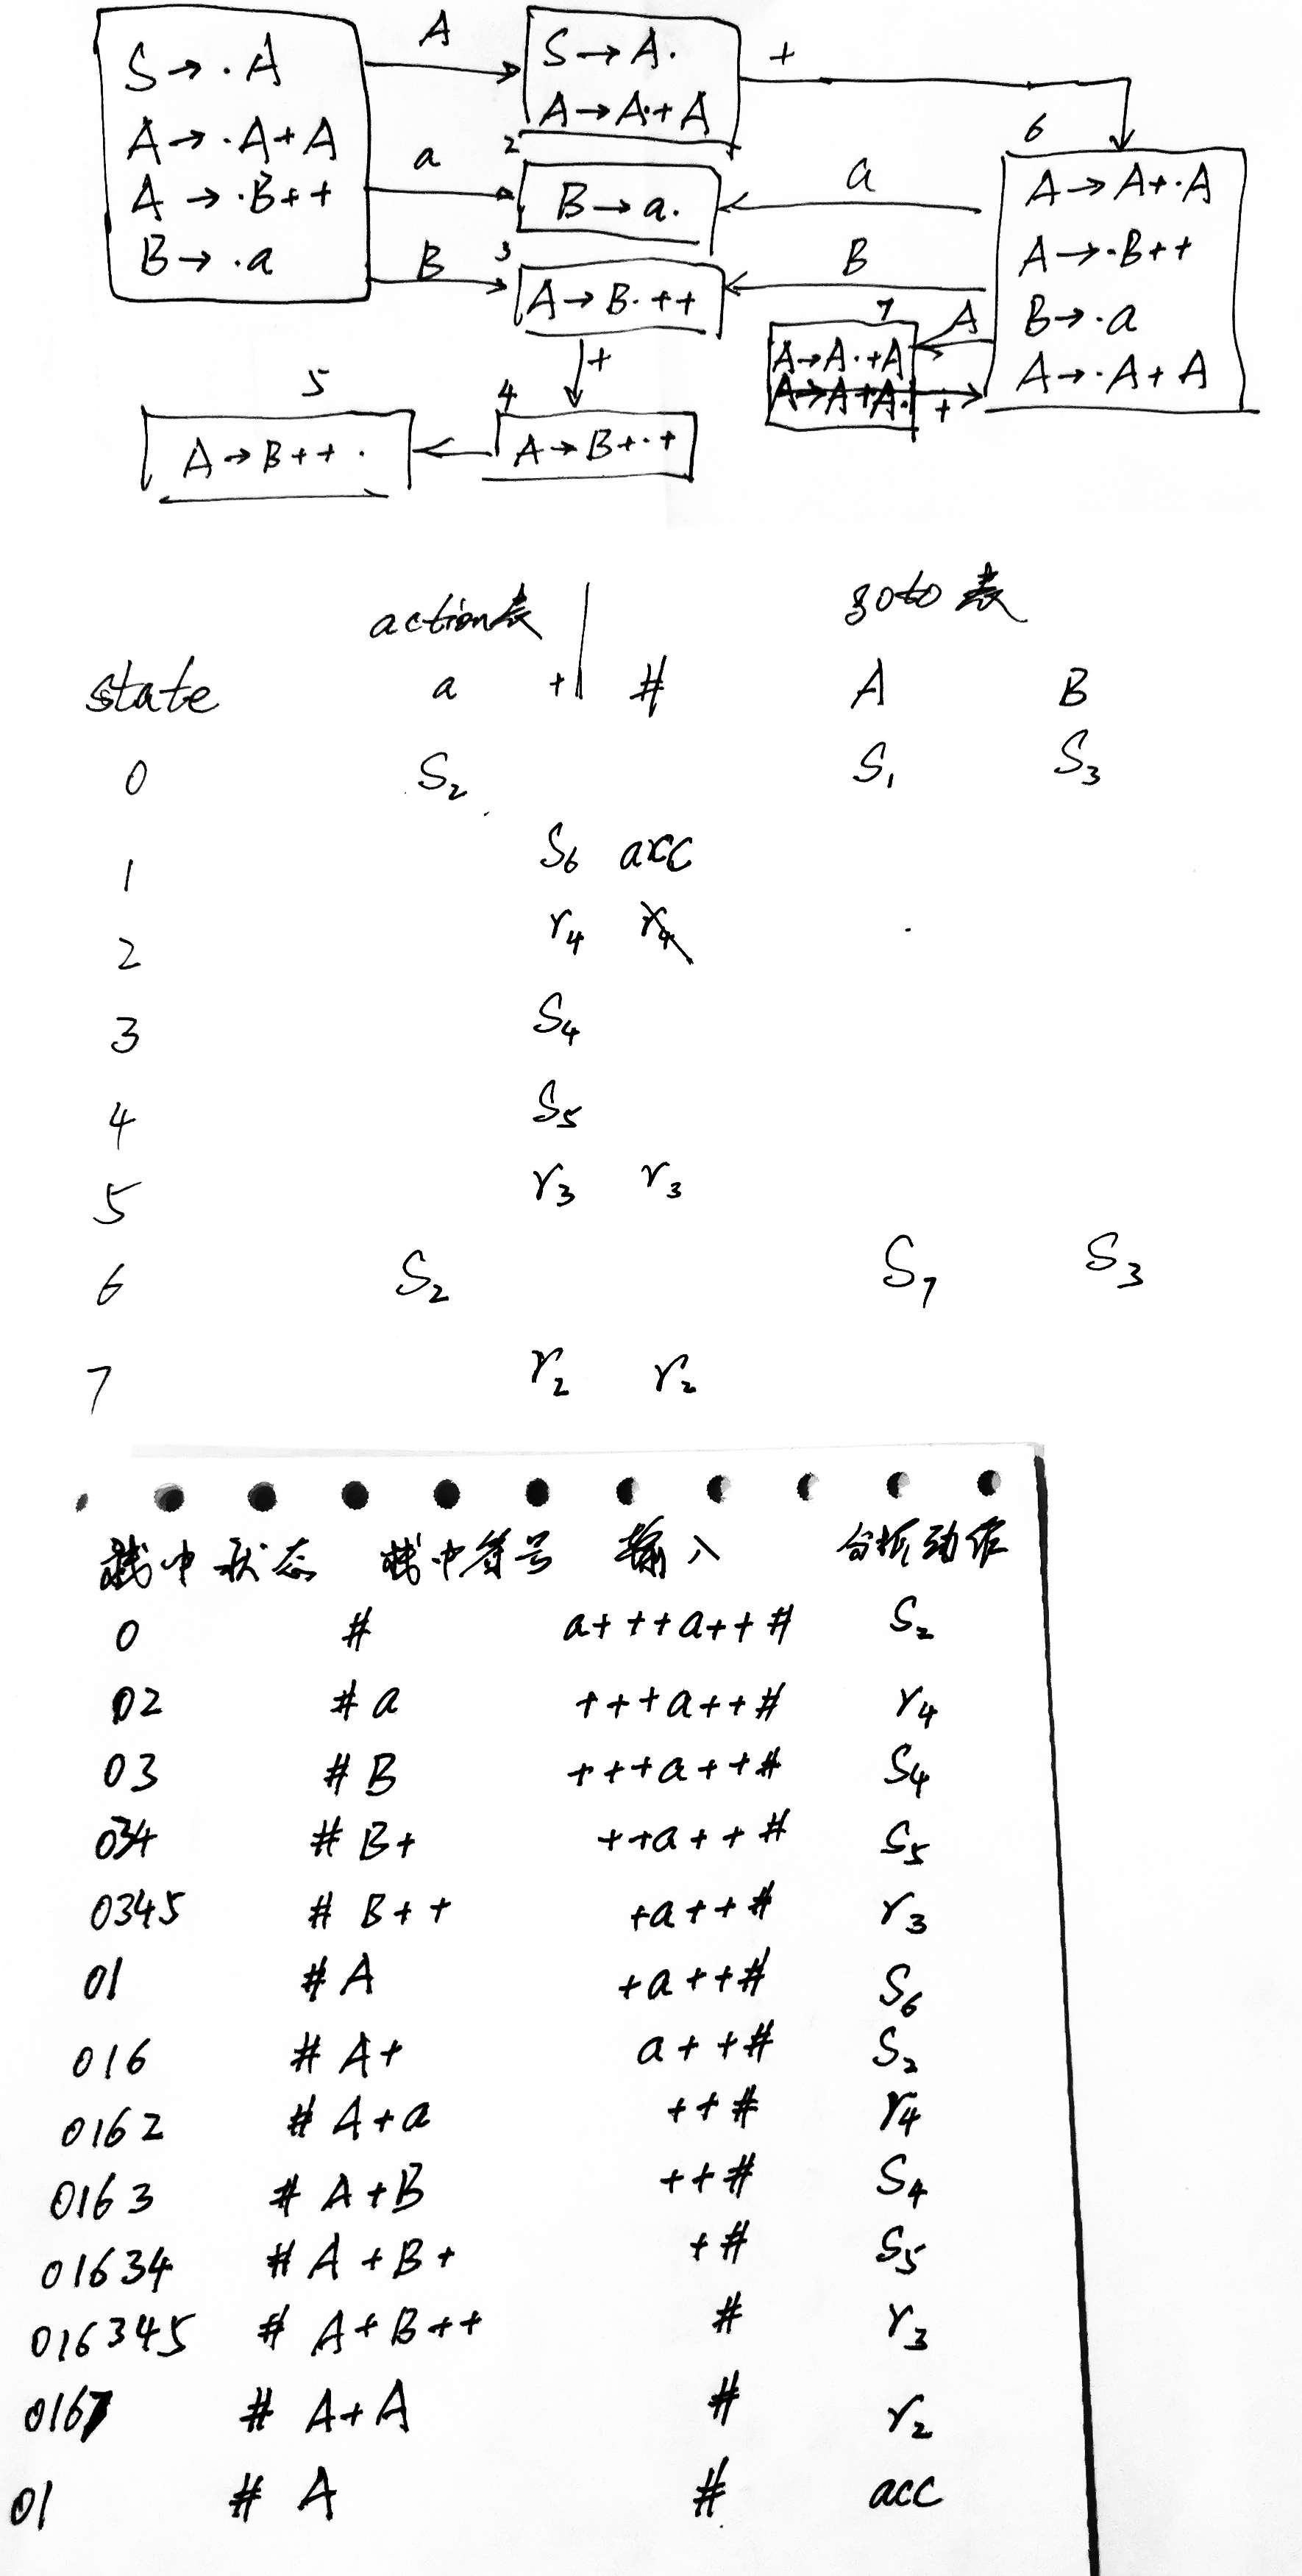 S → · A
A → · A + A
A → · B + +
B → · a
A
a
B
S → A ·
A → A · + A
2
B → a ·
3
A → B · + +
+
4
A → B + · +
5
A → B + + ·
+
6
A → A + · A
A → · B + +
B → · a
A → · A + A
a
B
A
7
A → A · + A
A → A + A ·
+
action表 goto 表
state a + # A B
0 S₂ S₁ S₃
1 S₆ acc
2 r₄ r₄
3 S₄
4 S₅
5 r₃ r₃
6 S₂ S₇ S₃
7 r₂ r₂
栈中状态 栈中符号 输入 分析动作
0 # a+++a++# S₂
02 #a +++a++# r₄
03 #B +++a++# S₄
034 #B+ ++a++# S₅
0345 #B++ +a++# r₃
01 #A +a++# S₆
016 #A+ a++# S₂
0162 #A+a ++# r₄
0163 #A+B ++# S₄
01634 #A+B+ +# S₅
016345 #A+B++ # r₃
0167 #A+A # r₂
01 #A # acc